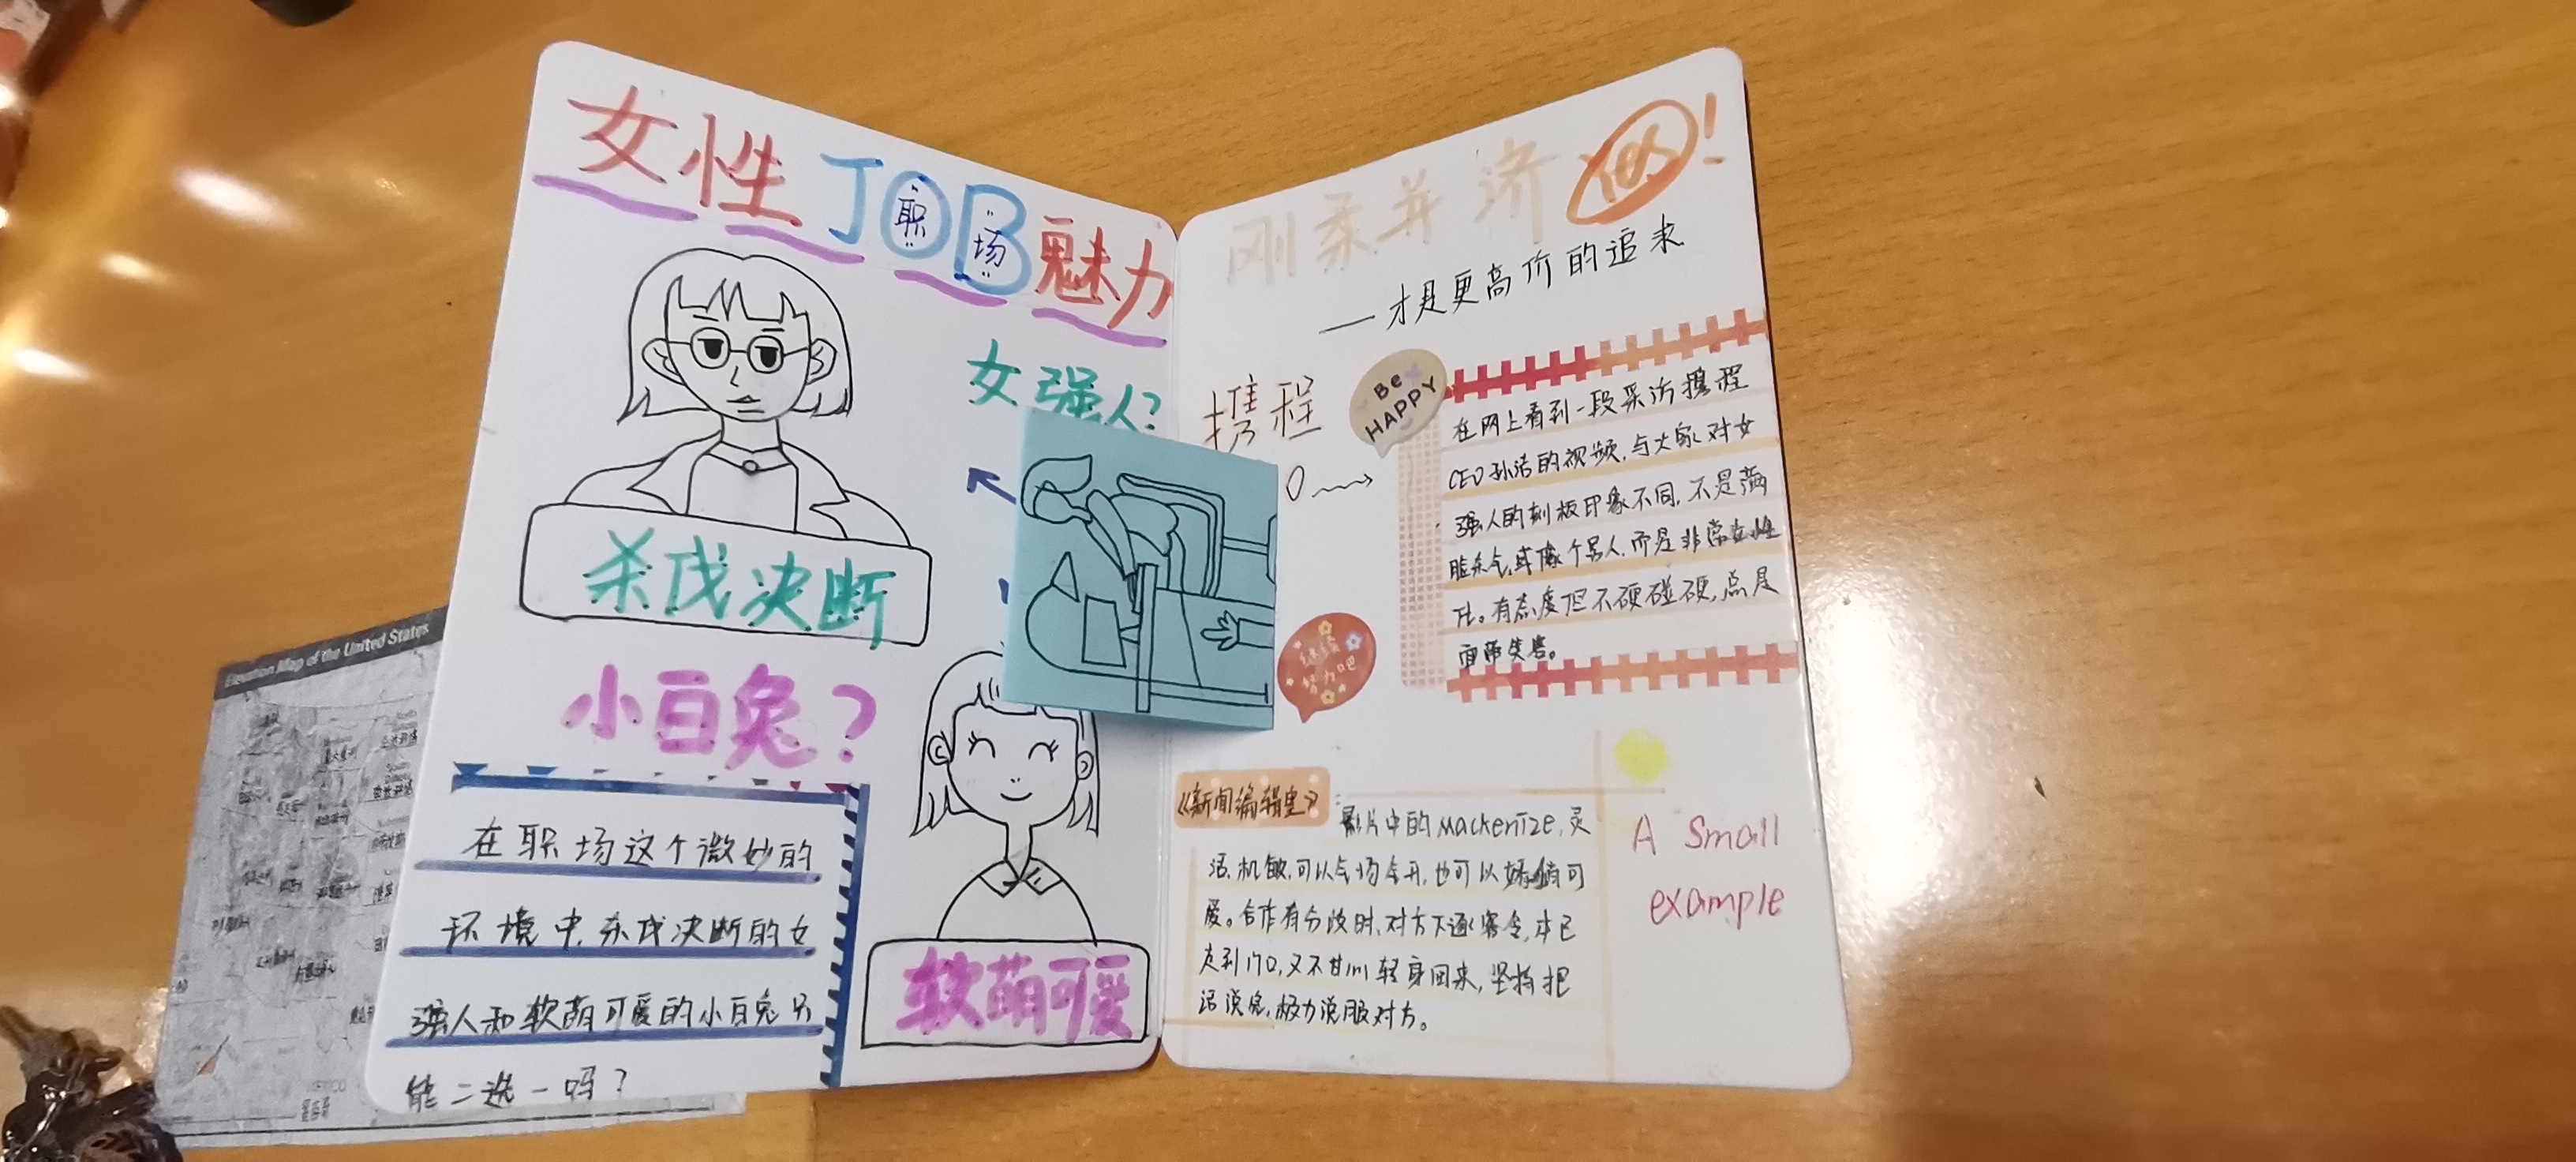 女性JOB魅力
职场
女强人?
杀伐决断
小白兔?
在职场这个微妙的
环境中,杀伐决断的女
强人和软萌可爱的小白兔只
能二选一吗?
软萌可爱
刚柔并济
!
——才是更高阶的追求
携程
Be HAPPY
在网上看到一段采访携程
CEO孙洁的视频,与大家对女
强人的刻板印象不同,不是满
脸杀气,或像个男人,而是非常女性
化。有态度但不硬碰硬,总是
面带笑容。
继续
努力吧
《新闻编辑室》:
影片中的Mackenize,灵
活,机敏,可以气场全开,也可以娇俏可
爱。合作有分歧时,对方下逐客令,本已
走到门口,又不甘心转身回来,坚持把
话说完,极力说服对方。
A Small
example
Elevation Map of the United States